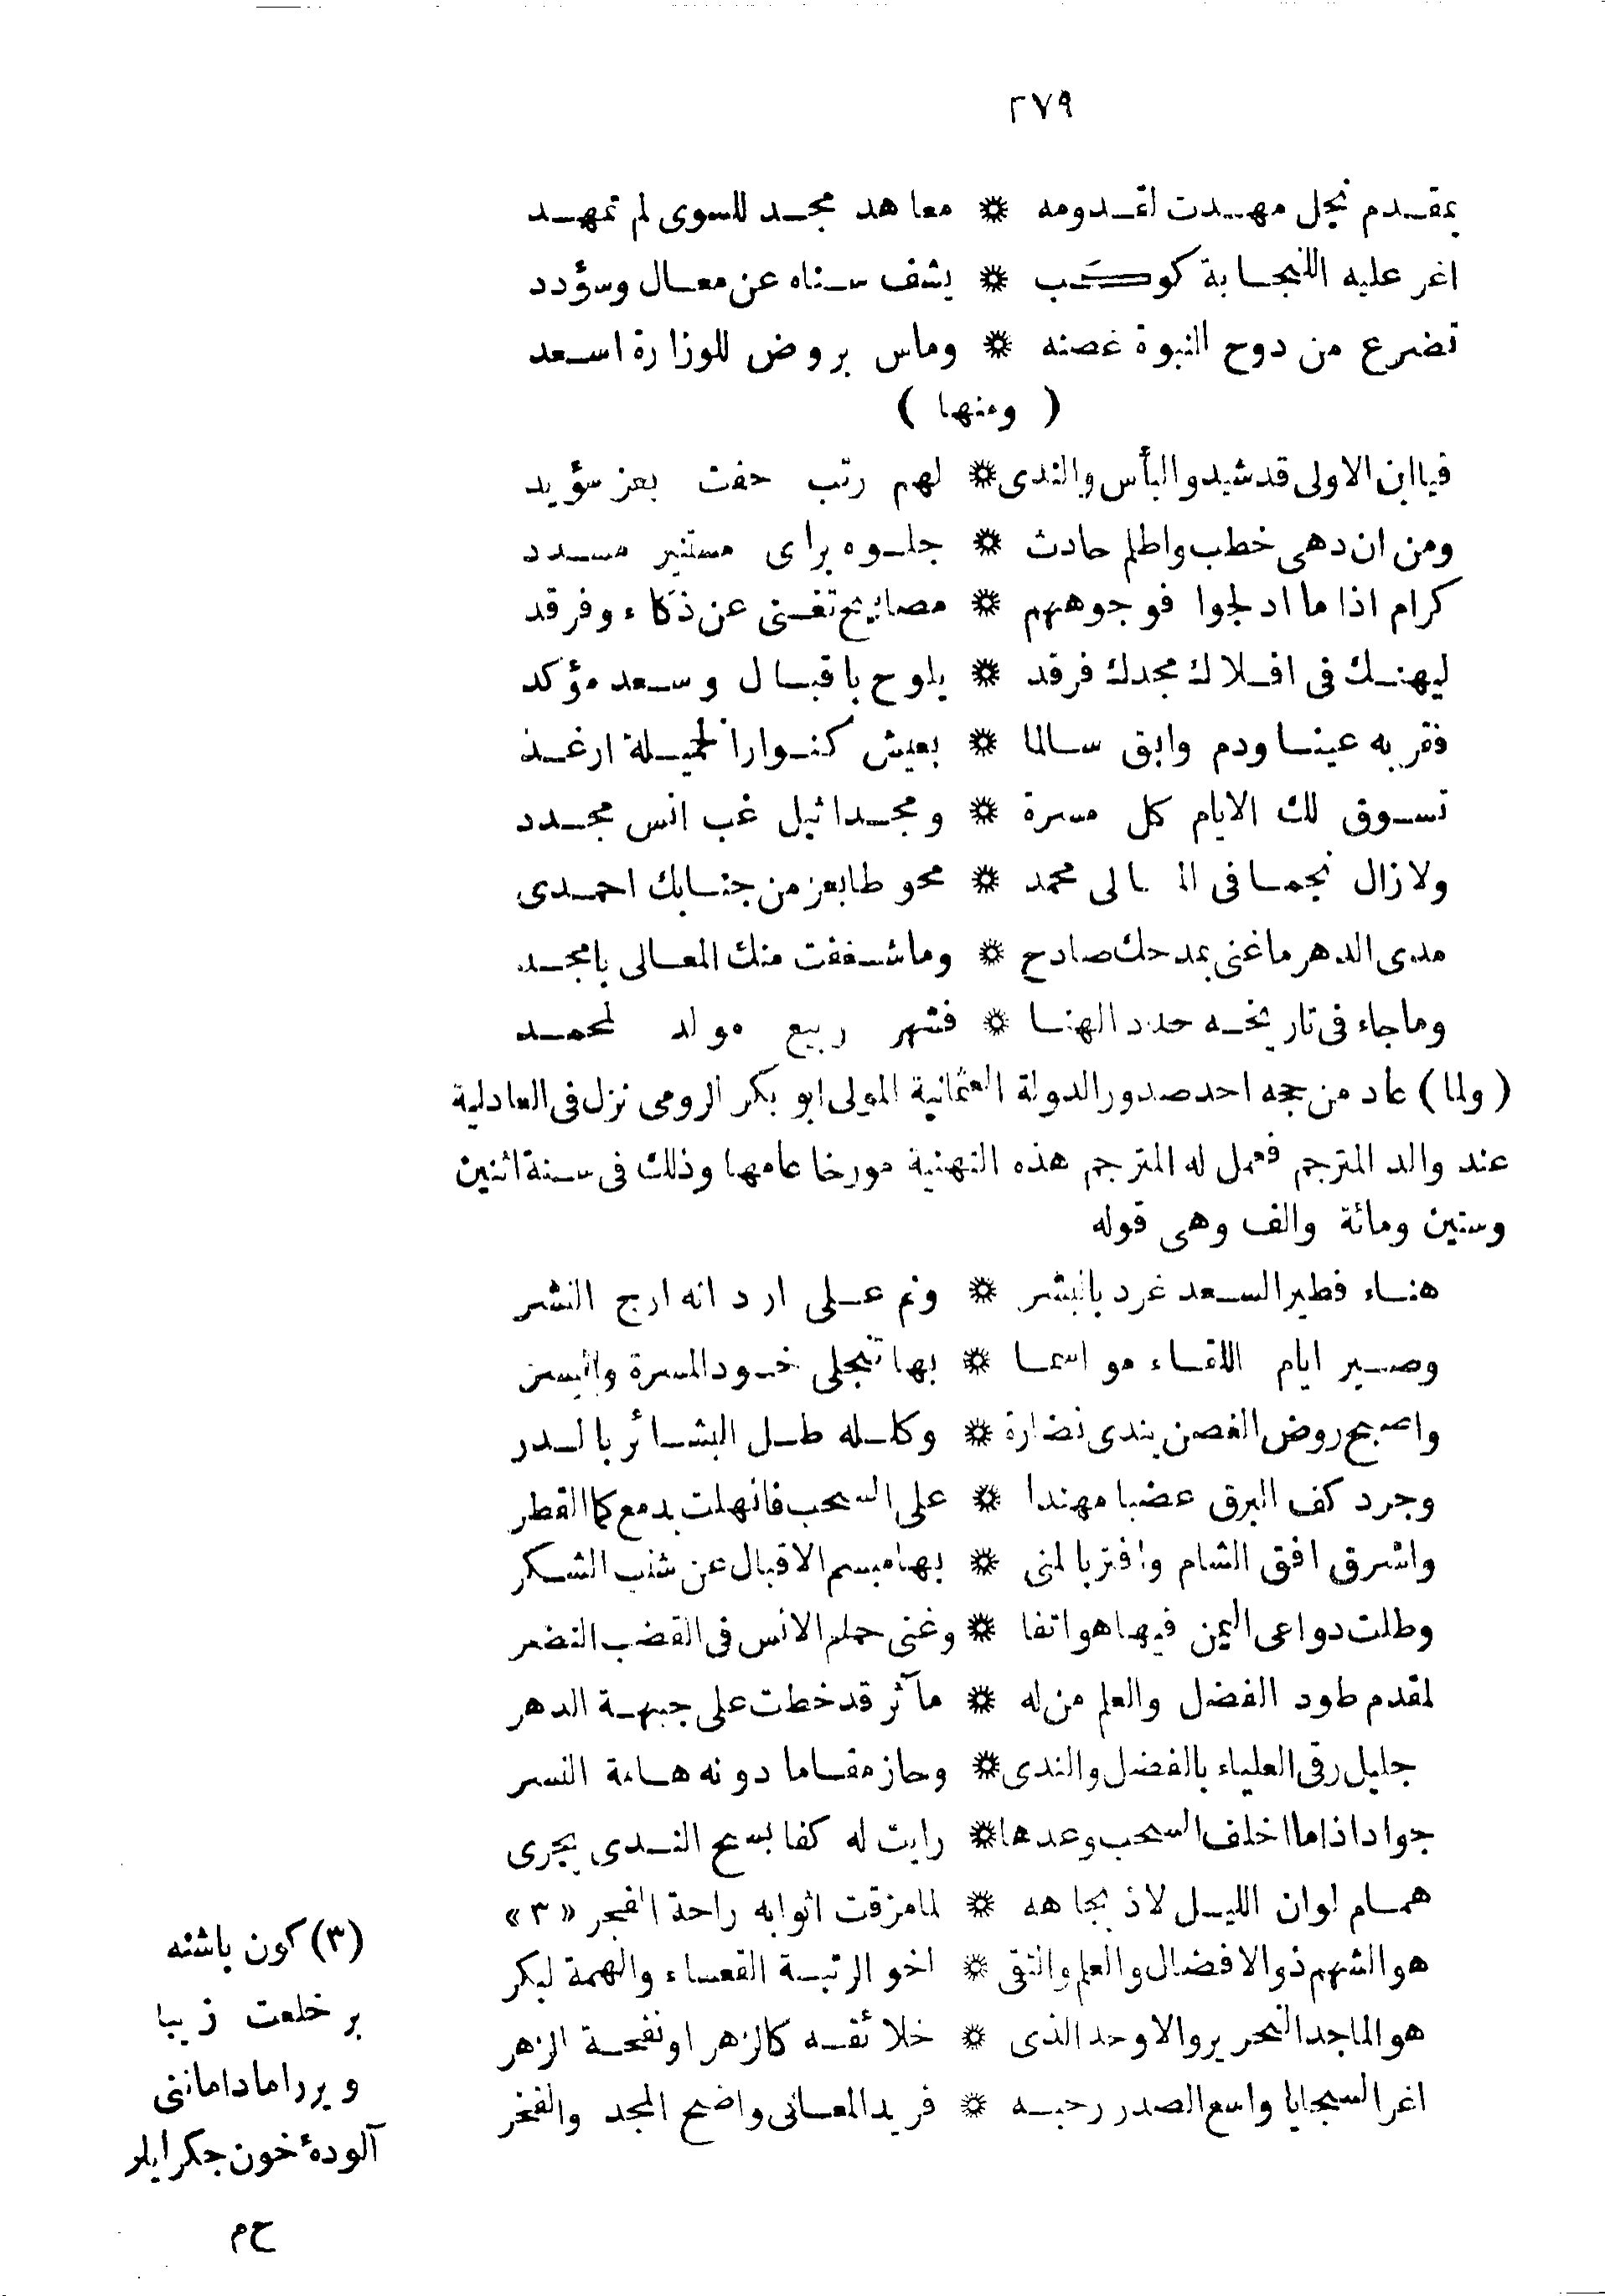 ٢٧٩
بمقدم نجل مهدت لقدومه * معاهد مجد للسوى لم تمهد
اغر عليه للنجابة كوكب * يشف سناه عن معال وسؤدد
تضرع من دوح النبوة غصنه * وماس بروض للوزارة اسعد
( ومنها )
فياابن الاولى قد شيدوا البأس والندى * لهم رتب حفت بعز مؤيد
ومن ان دهى خطب واظلم حادث * جلوه براى مستنير مسدد
كرام اذا ما ادلجوا فوجوههم * مصابيح تغنى عن ذكاء وفرقد
ليهنك فى افلاك مجدك فرقد * يلوح باقبال وسعد مؤكد
فقر به عينا ودم وابق سالما * بعيش كنوار الخميلة ارغد
تسوق لك الايام كل مسرة * ومجدا ثيل غب انس مجدد
ولازال نجما فى المعالى محمد * محوطا بعز من جنابك احمدى
مدى الدهر ما غنى بمدحك صادح * وماشغفت منك المعالى بامجد
وماجاء فى تاريخه حدد الهنا * فشهر ربيع مولد لمحمد
( ولما ) عاد من حجه احد صدور الدولة العثمانية المولى ابو بكر الرومى نزل فى العادلية
عند والد المترجم فعمل له المترجم هذه التهنية مورخا عامها وذلك فى سنة اثنين
وستين ومائة والف وهى قوله
هناء فطير السعد غرد بالبشر * ونم على اردانه ارج النشر
وصير ايام اللقاء مواسما * بها تنجلى خود المسرة واليسر
واصبح روض الغصن يندى نضارة * وكلله طل البشائر بالدر
وجرد كف البرق عضبا مهندا * على السحب فانهلت بدمع كما القطر
واشرق افق الشام وافتر بالمنى * بها مبسم الاقبال عن شنب الشكر
وظلت دواعى اليمن فيها هواتفا * وغنى حمام الانس فى القضب النضر
لمقدم طود الفضل والعلم من له * مآثر قد خطت على جبهة الدهر
جليل رقى العلياء بالفضل والندى * وحاز مقاما دونه هامة النسر
جواد اذا ما اخلف السحب وعدها * رايت له كفا بسح الندى يجرى
همام لوان الليل لاذ بجاهه * لما مزقت اثوابه راحة الفجر «٣»
هو الشهم ذو الافضال والعلم والتقى * اخو الرتبة القعساء والهمة لبكر
هو الماجد النحرير والاوحد الذى * خلائقه كالزهر او نفحة الزهر
اغر السجايا واسع الصدر رحبه * فريد المعانى واضح المجد والفخر
(٣) كون باشنه
بر خلعت زيبا
ويرر اما دامانى
آلودۀ خون جكر ايلر
ح م